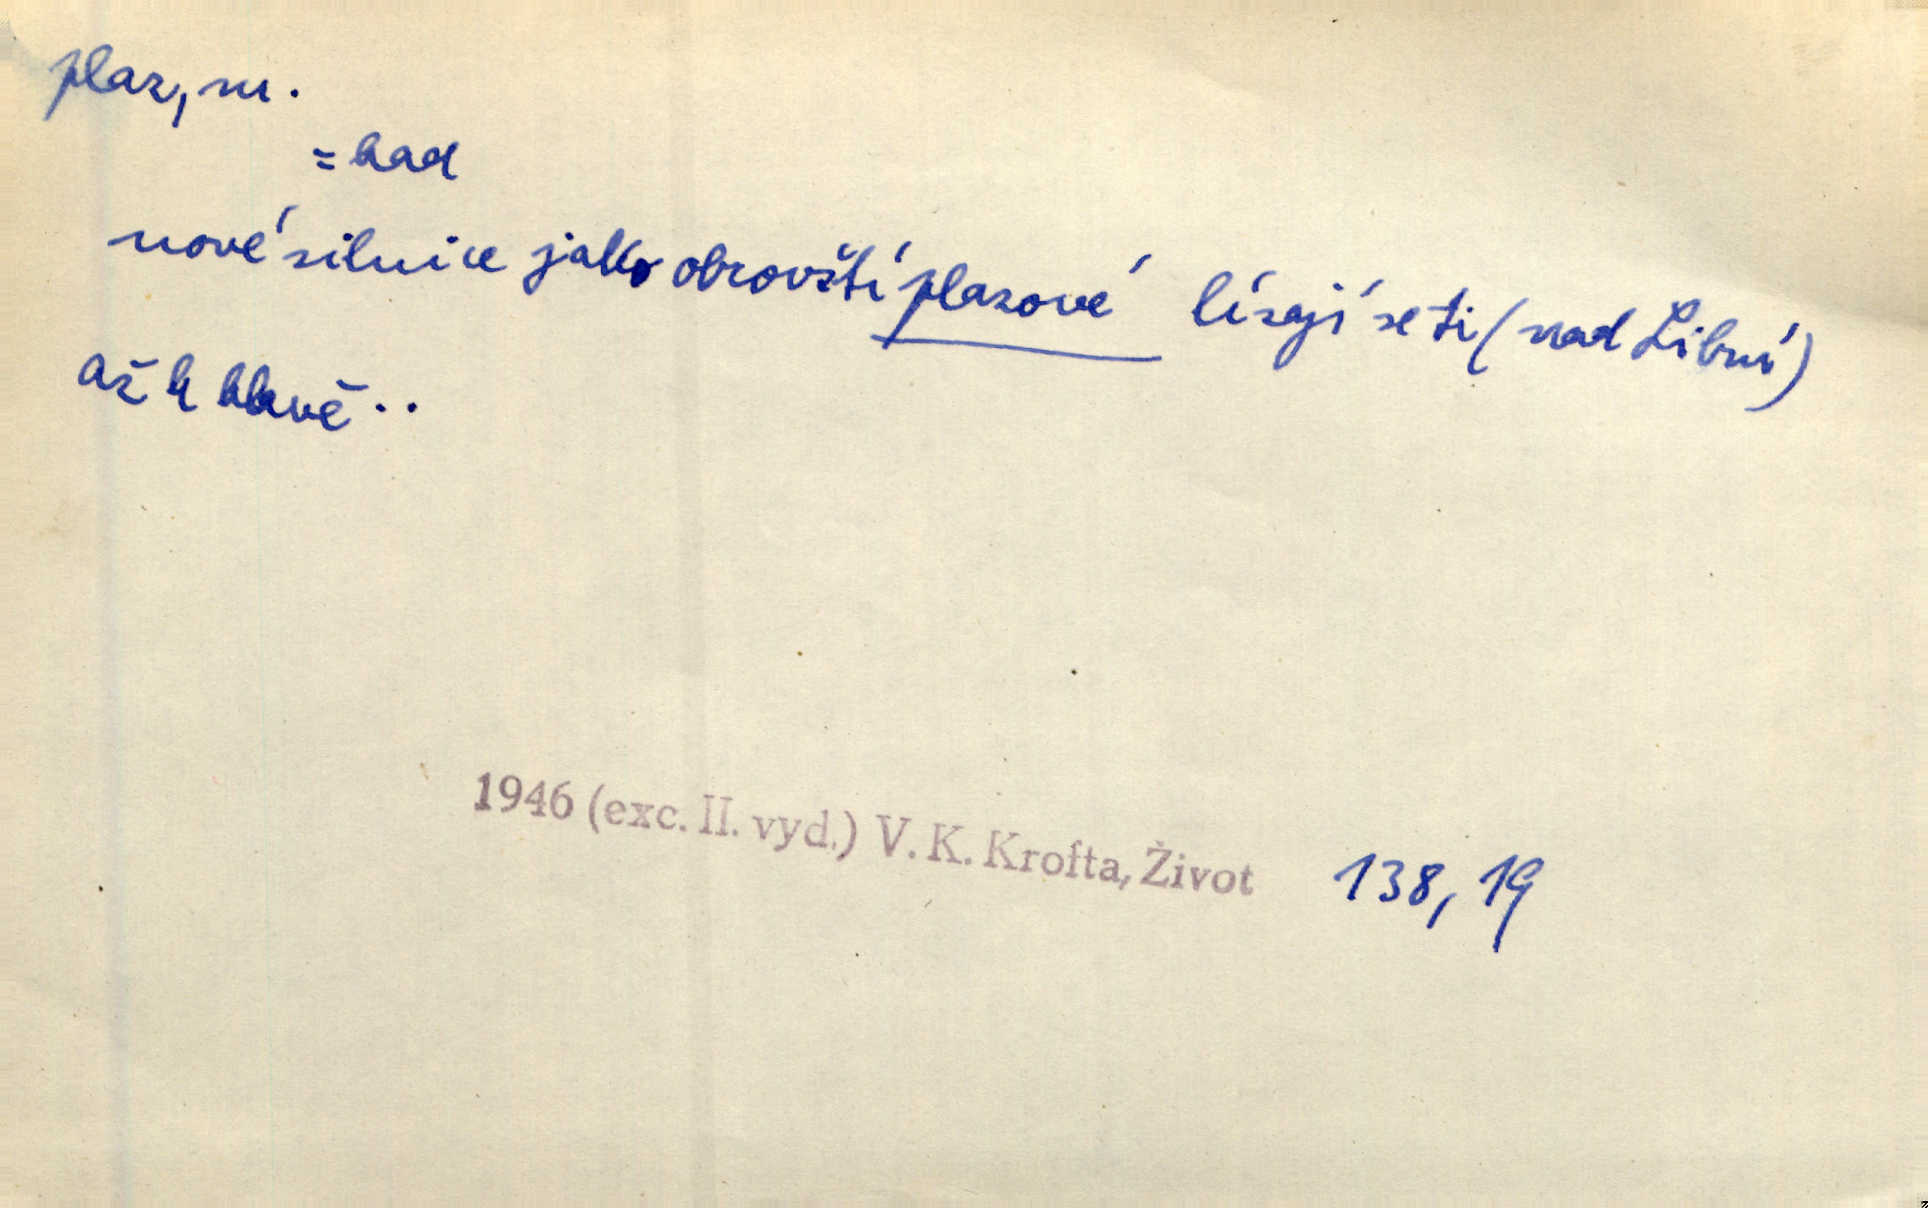 plaz, m.
= had
nové silnice jako obrovští plazové lísají se ti (nad Libní)
až k hlavě..
1946 (exc. II. vyd.) V. K. Krofta, Život 138, 19